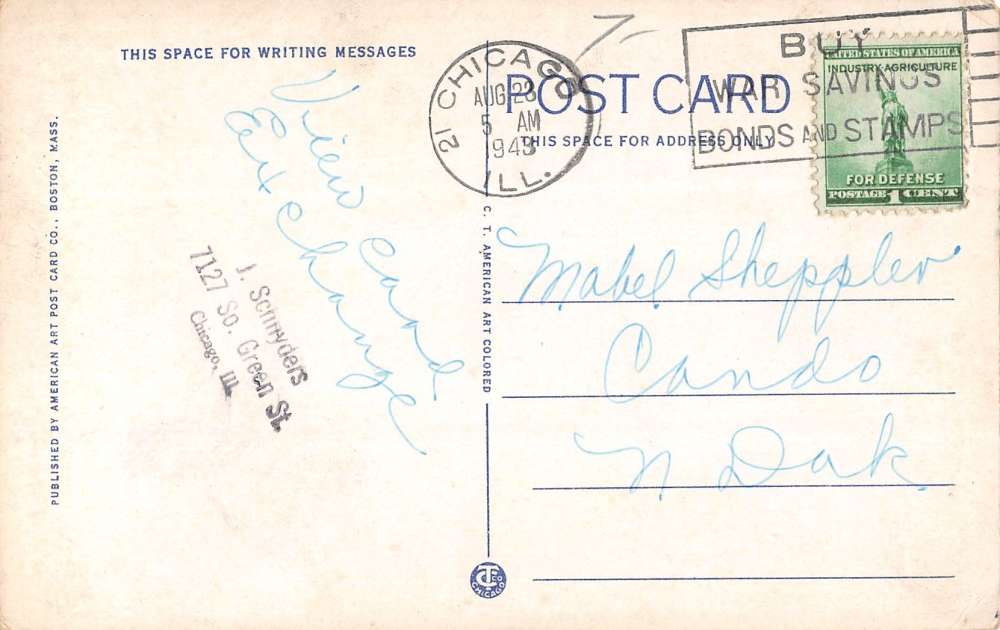 THIS SPACE FOR WRITING MESSAGES
View Card
Exchange
J. Schnyders
7127 So. Green St.
Chicago, Ill.
PUBLISHED BY AMERICAN ART POST CARD CO., BOSTON, MASS.
C. T. AMERICAN ART COLORED
CT Co
CHICAGO
21 CHICAGO
AUG 23
5 AM
1943
ILL.
POST CARD
THIS SPACE FOR ADDRESS ONLY
BUY
WAR SAVINGS
BONDS AND STAMPS
UNITED STATES OF AMERICA
INDUSTRY AGRICULTURE
FOR DEFENSE
POSTAGE 1 CENT
Mabel Sheppler
Cando
N Dak